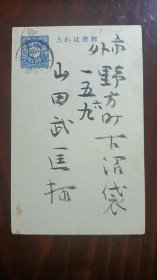 郵便はかき
市外
野方町下沼袋
一五九六
山田武匡様